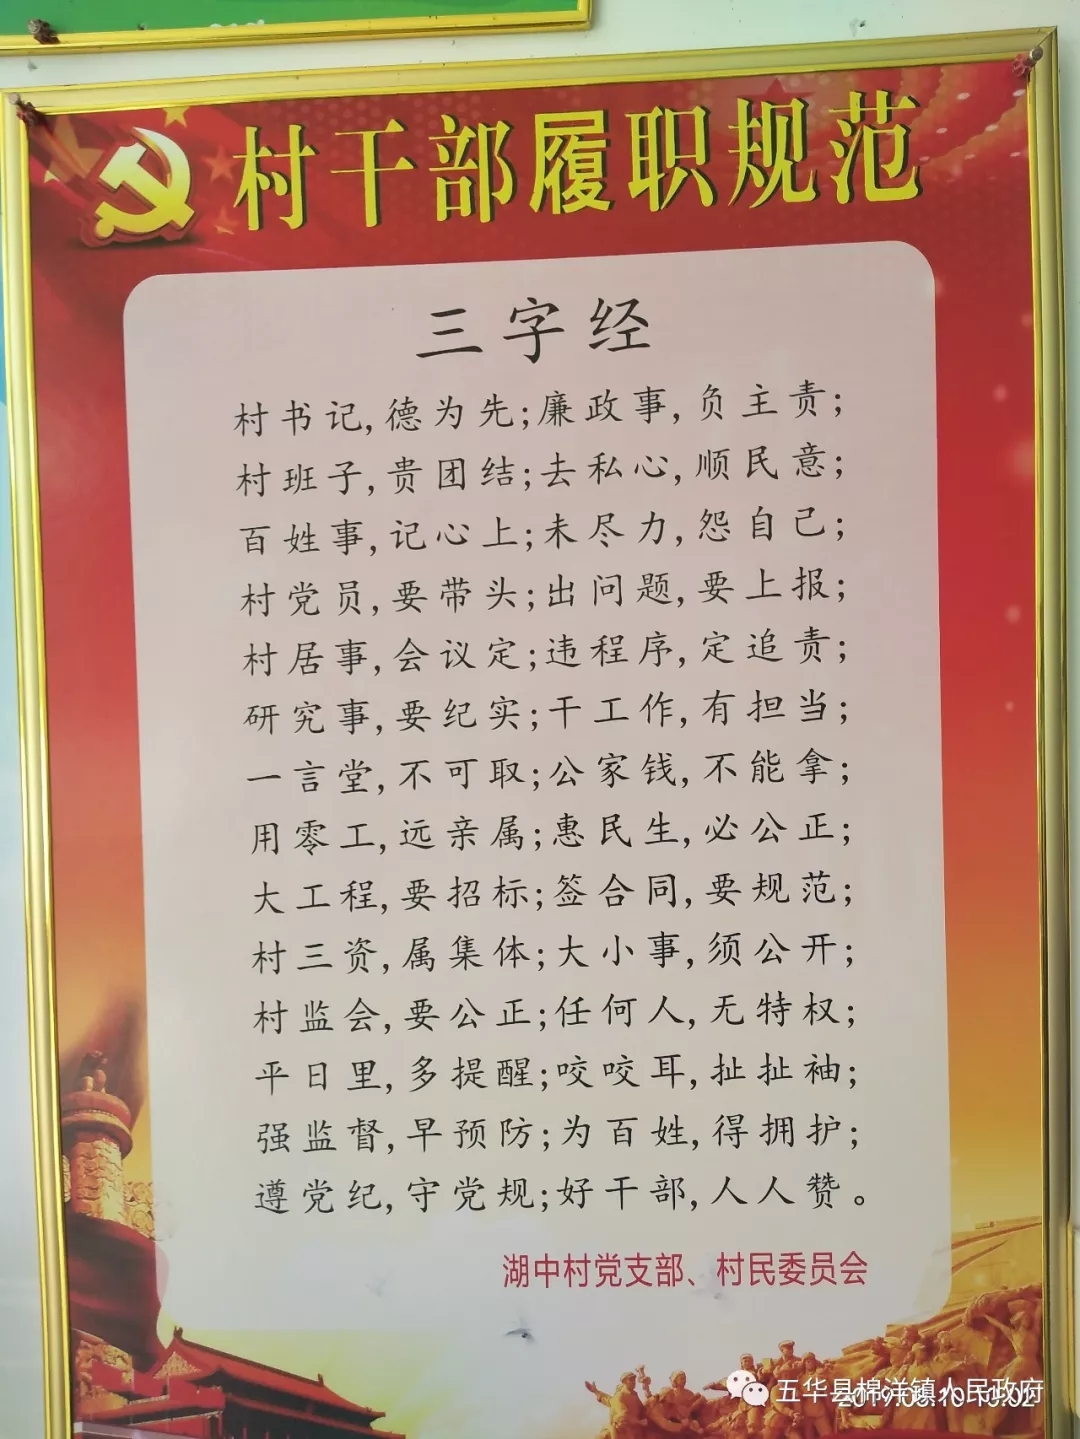 村干部履职规范
三字经
村书记,德为先;廉政事,负主责;
村班子,贵团结;去私心,顺民意;
百姓事,记心上;未尽力,怨自己;
村党员,要带头;出问题,要上报;
村居事,会议定;违程序,定追责;
研究事,要纪实;干工作,有担当;
一言堂,不可取;公家钱,不能拿;
用零工,远亲属;惠民生,必公正;
大工程,要招标;签合同,要规范;
村三资,属集体;大小事,须公开;
村监会,要公正;任何人,无特权;
平日里,多提醒;咬咬耳,扯扯袖;
强监督,早预防;为百姓,得拥护;
遵党纪,守党规;好干部,人人赞。
湖中村党支部、村民委员会
五华县棉洋镇人民政府